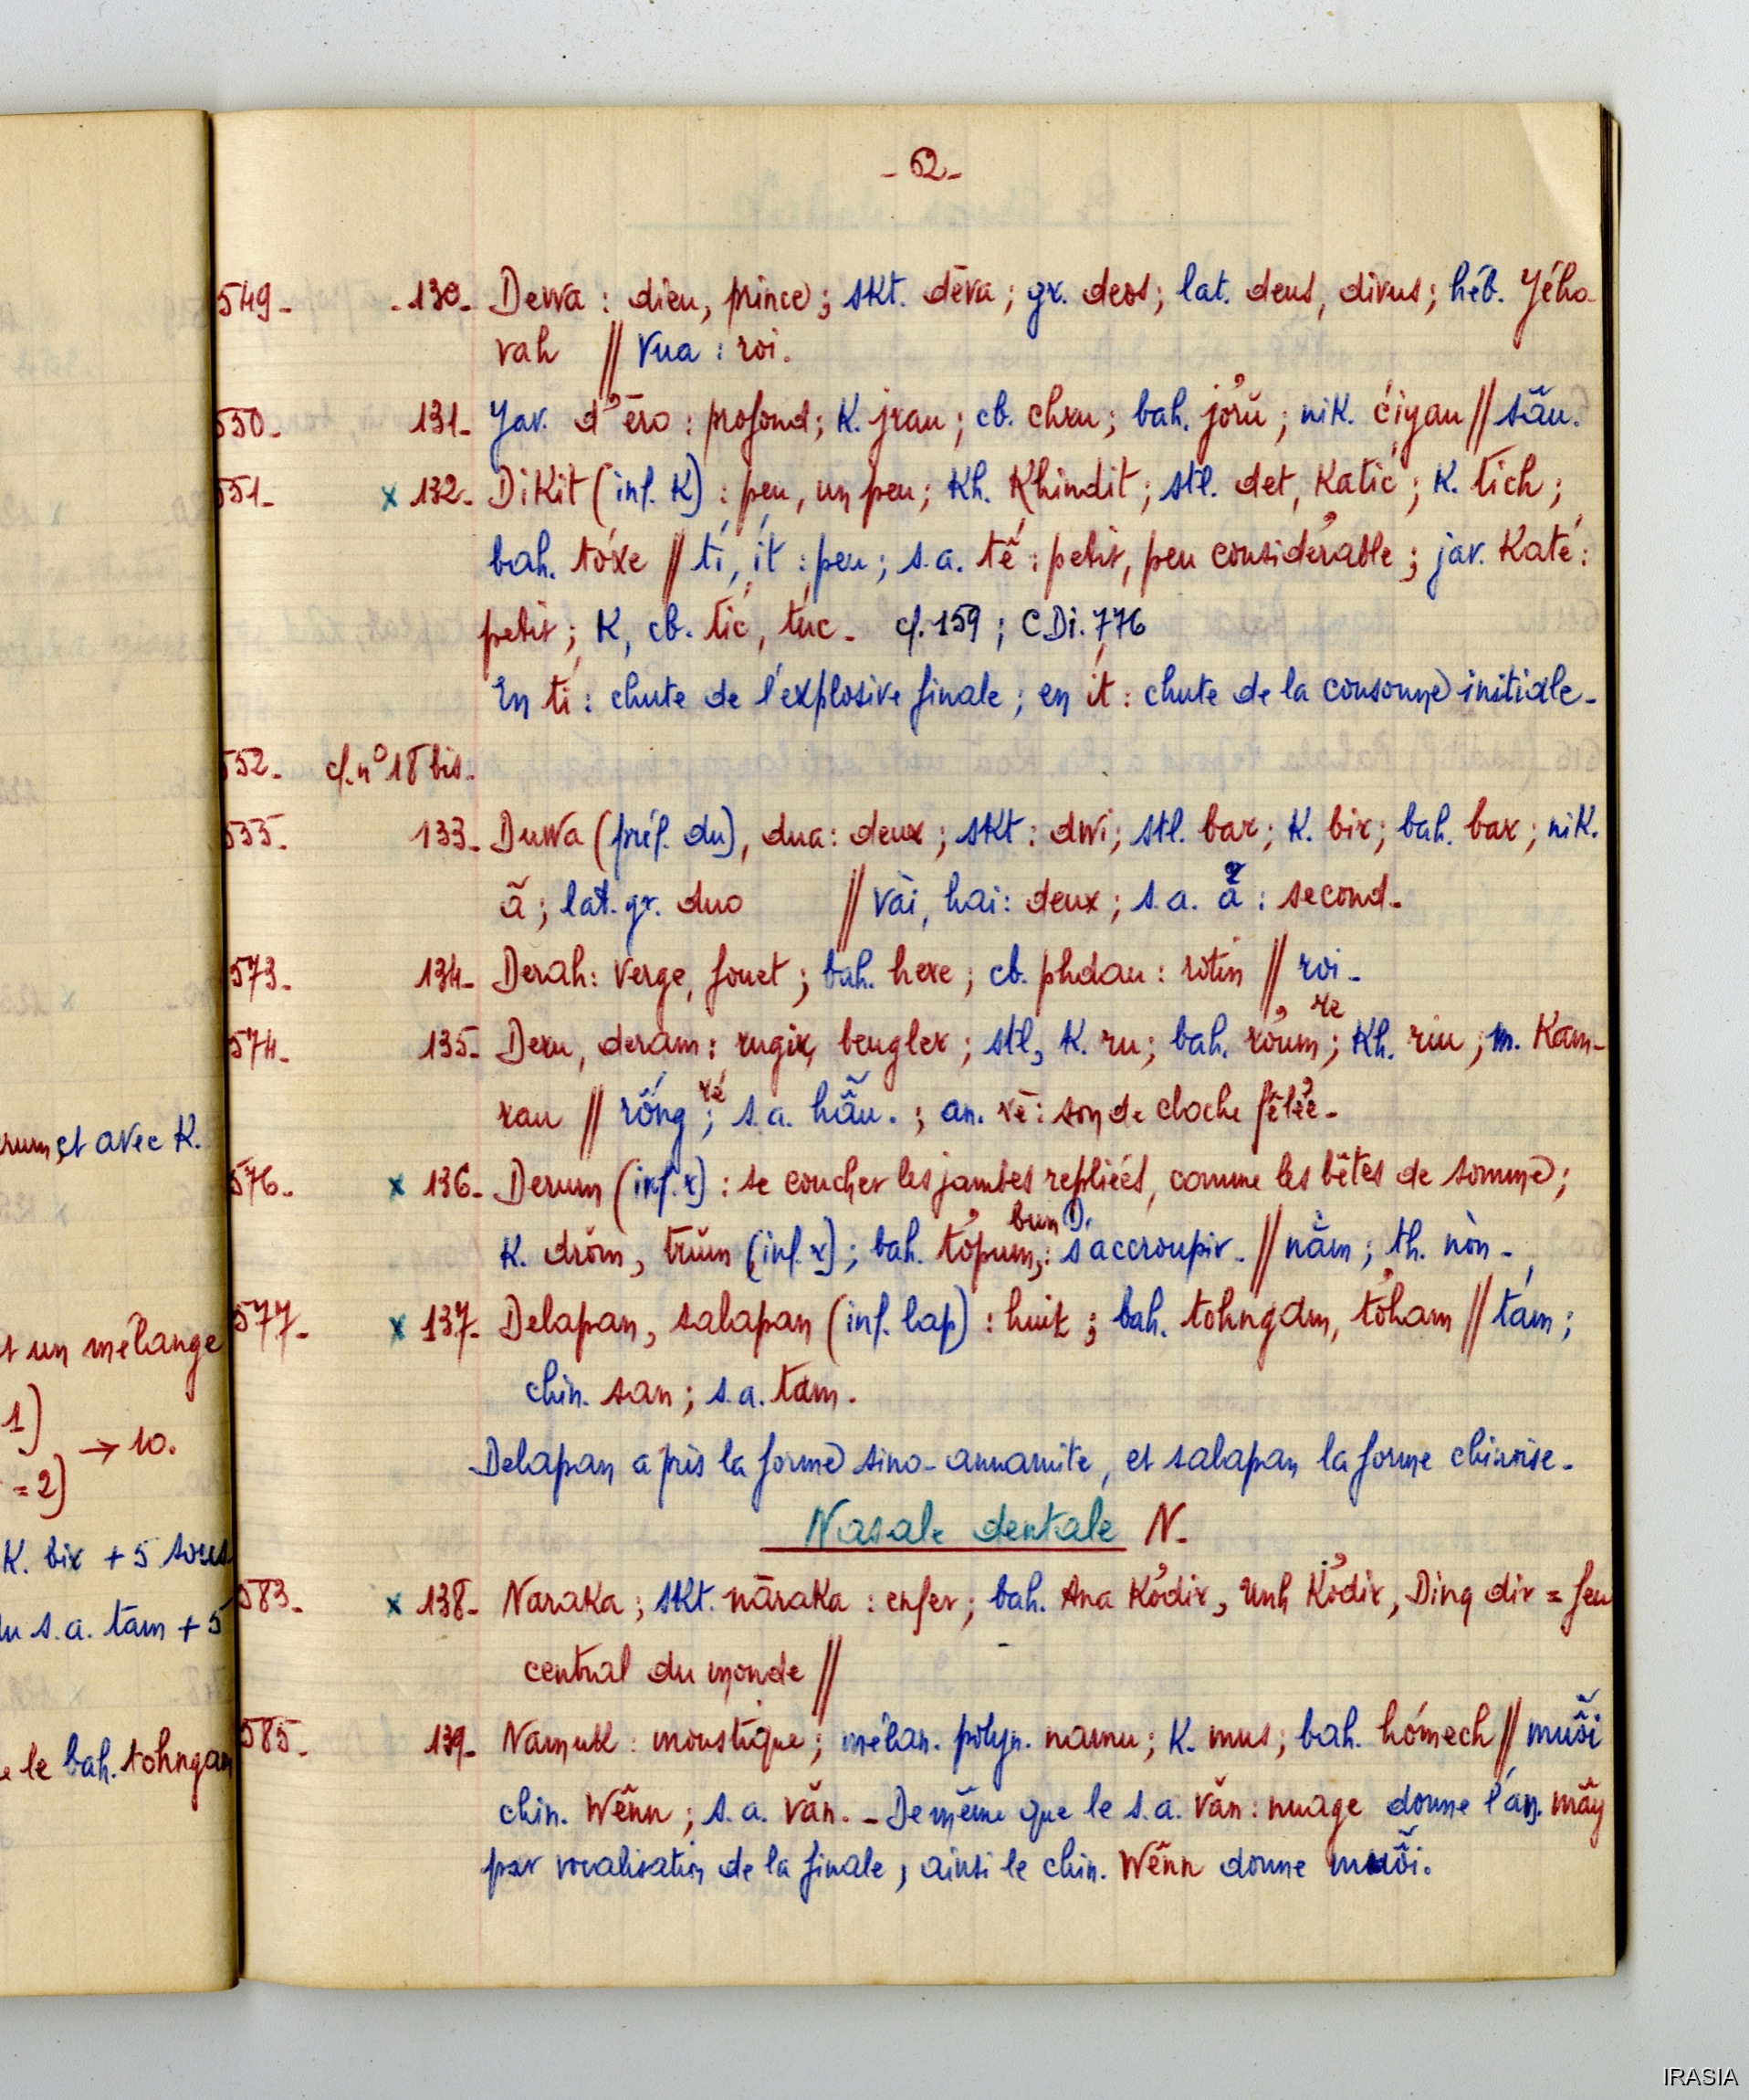 - 62 -
549- -130- Dewa : dieu, prince ; skt. dēva ; gr. deos ; lat. deus, divus ; héb. Jého-
vah // Vua : roi.
550- 131- Jav. d'ēro : profond ; K. jrau ; cb. chru ; bah. jơrŭ ; nik. ćiyau // sâu.
551- x 132- Dikit (inf. K) : peu, un peu ; Kh. Khindit ; stl. det, Katić ; K. tich ;
bah. tơxe // tí, ít : peu ; s.a. tế : petit, peu considérable ; jav. Katé :
petit ; K, cb. tić, túc - cf. 159 ; CDi. 776
En tí : chute de l'explosive finale ; en ít : chute de la consonne initiale -
552- cf. n° 18 bis.
555- 133- Duwa (préf. du), dua : deux ; skt : dwi ; stl. bar ; K. bir ; bah. bar ; nik.
ă ; lat. gr. duo // vài, hai : deux ; s.a. á : second -
573- 134- Derah : verge, fouet ; bah. hexe ; cb. phdau : rotin // roi -
re
574- 135- Deru, deram : rugir, beugler ; stl, K. ru ; bah. rơum ; Kh. riu ; m. Kam-
ré
rau // rống ; s.a. hẩu. ; an. rè : son de cloche fêlée -
576- x 136- Derum (inf. r) : se coucher les jambes repliées, comme les bêtes de somme ;
bum D.
K. drŏm, trŭm (inf. r) ; bah. tơpum, : s'accroupir. // nằm ; th. nòn -
577- x 137- Delapan, salapan (inf. lap) : huit ; bah. tohngam, tơham // tám ;
chin. san ; s.a. tam.
Delapan a pris la forme sino-annamite, et salapan la forme chinoise -
Nasale dentale N-
583- x 138- Naraka ; skt. nāraka : enfer ; bah. Ana Kơdir, Unh Kơdir, Ding dir = feu
central du monde //
585- 139- Namuk : moustique ; mélan. polyn. namu ; K. mus ; bah. hómech // muỗi
chin. Wênn ; s.a. văn. - De même que le s.a. vân : nuage donne l'an. mây
par vocalisation de la finale, ainsi le chin. Wênn donne muỗi.
rum, et avec K.
un mélange
1)
→ 10.
= 2)
K. bir + 5 sous
s.a. tám + 5
le bah. tohngam
IRASIA